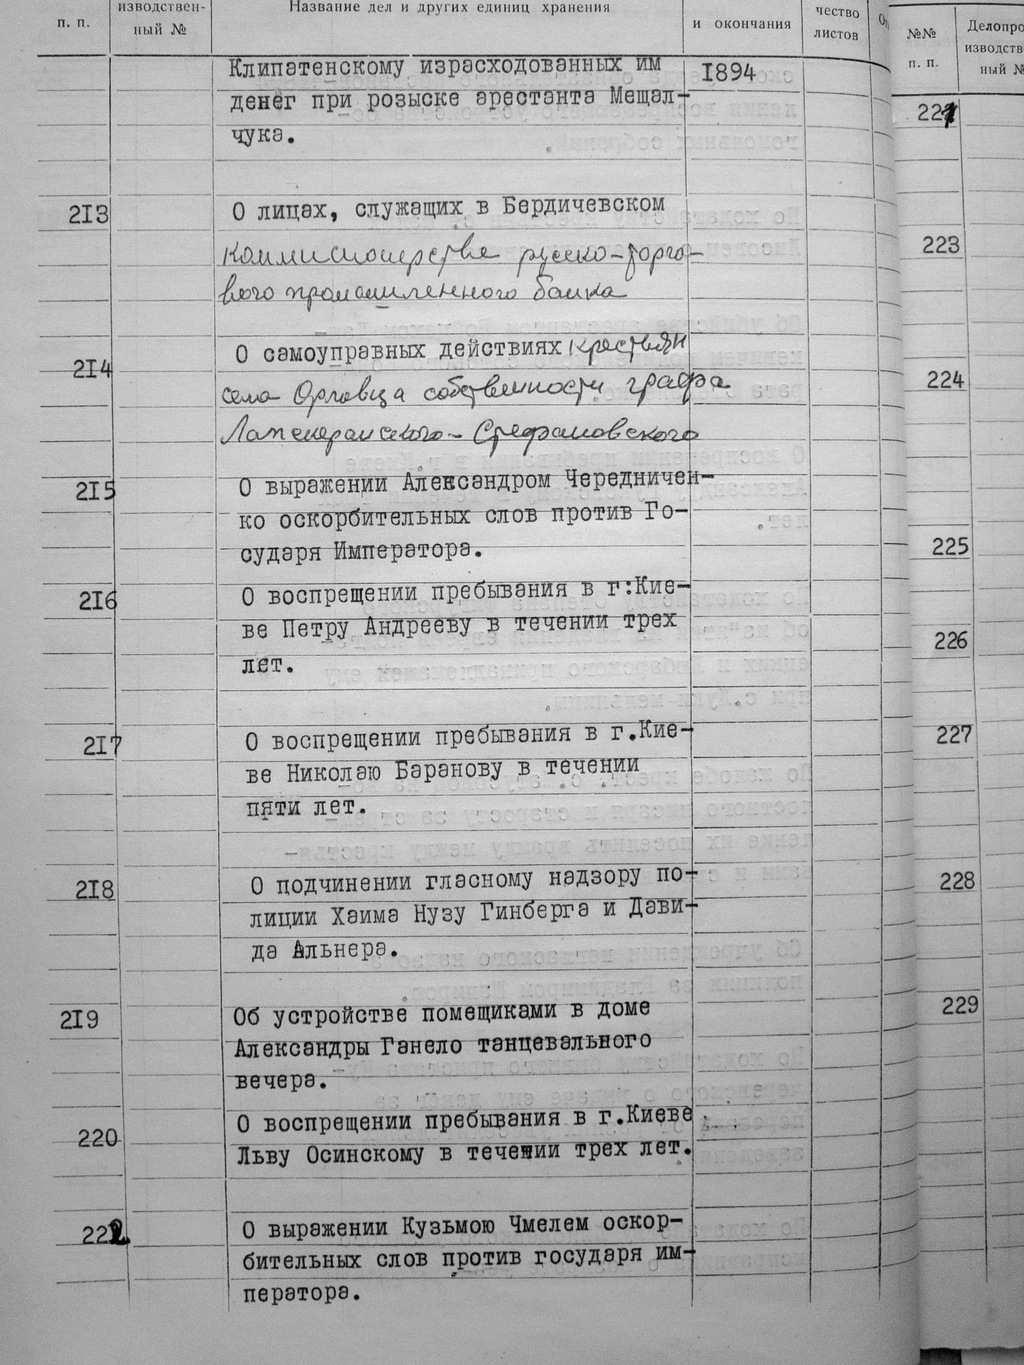 п. п.
изводствен-
ный №
Название дел и других единиц хранения
и окончания
чество
листов
Клипатенскому израсходованных им
1894
денег при розыске арестанта Мещал-
чука.
213
О лицах, служащих в Бердичевском
коммисионерстве русско-торго-
вого промышленного банка
214
О самоуправных действиях крестьян
села Орловца собственности графа
Лансекранского-Стефановского
215
О выражении Александром Чередничен-
ко оскорбительных слов против Го-
сударя Императора.
216
О воспрещении пребывания в г:Кие-
ве Петру Андрееву в течении трех
лет.
217
О воспрещении пребывания в г.Кие-
ве Николаю Баранову в течении
пяти лет.
218
О подчинении гласному надзору по-
лиции Хаима Нузу Гинберга и Дави-
да Альнера.
219
Об устройстве помещиками в доме
Александры Ганело танцевального
вечера.
220
О воспрещении пребывания в г.Киеве
Льву Осинскому в течении трех лет.
222
О выражении Кузьмою Чмелем оскор-
бительных слов против государя им-
ператора.
№№
п. п.
Делопро
изводств
ный №
221
223
224
225
226
227
228
229